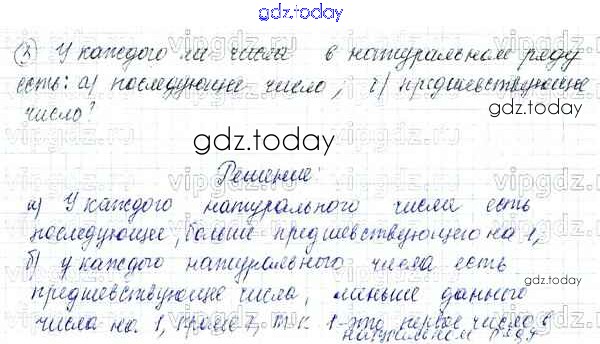 gdz.today
③ У каждого ли числа в натуральном ряду
есть: а) последующее число; б) предшествующее
число?
gdz.today
Решение:
а) У каждого натурального числа есть
последующее, больше предшествующего на 1,
б) у каждого натурального числа есть
gdz.today
предшествующее число, меньше данного
числа на 1, кроме 1, т.к 1-это первое число в
натуральном ряду